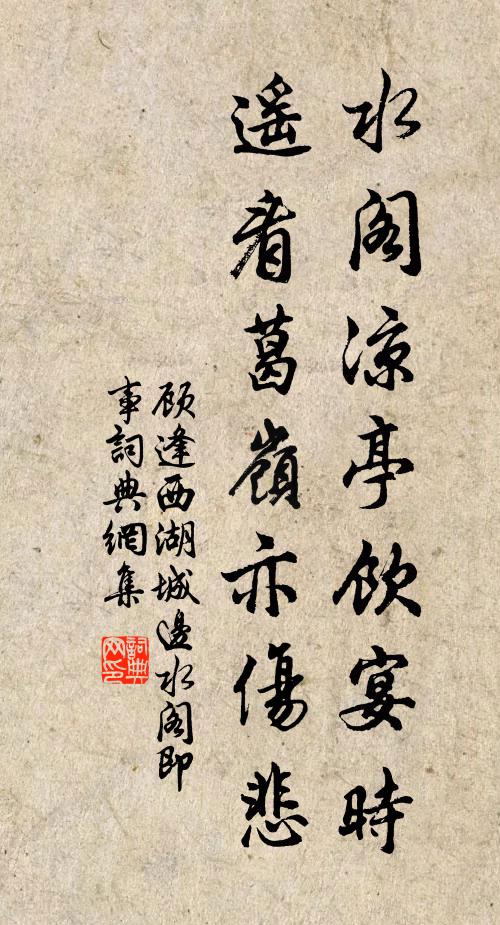 水阁凉亭飲宴時
遥看葛嶺亦傷悲
顾逢西湖城邊水阁即
事詞典網集
詞典
网印